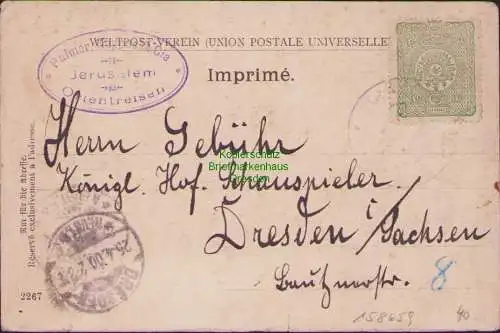 WELTPOST-VEREIN (UNION POSTALE UNIVERSELLE)
Palmer
Jerusalem
Orientreisen
Imprimé.
Herrn Gebühr
Kopierschutz
Briefmarkenhaus
Dresden
Königl. Hof. Schauspieler.
Dresden i/Sachsen
Bautznerstr. 8
Nur für die Adresse.
Réservé exclusivement à l'adresse.
DRESDEN
25.4.00
2267
158659
40